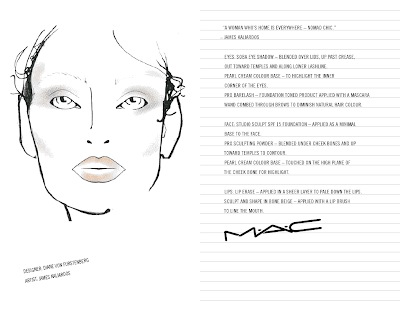 "A WOMAN WHO'S HOME IS EVERYWHERE – NOMAD CHIC."
- JAMES KALIARDOS
EYES: SOBA EYE SHADOW – BLENDED OVER LIDS, UP PAST CREASE,
OUT TOWARD TEMPLES AND ALONG LOWER LASHLINE.
PEARL CREAM COLOUR BASE – TO HIGHLIGHT THE INNER
CORNER OF THE EYES.
PRO BARELASH – FOUNDATION TONED PRODUCT APPLIED WITH A MASCARA
WAND COMBED THROUGH BROWS TO DIMINISH NATURAL HAIR COLOUR.
FACE: STUDIO SCULPT SPF 15 FOUNDATION – APPLIED AS A MINIMAL
BASE TO THE FACE.
PRO SCULPTING POWDER – BLENDED UNDER CHEEK BONES AND UP
TOWARD TEMPLES TO CONTOUR.
PEARL CREAM COLOUR BASE – TOUCHED ON THE HIGH PLANE OF
THE CHEEK BONE FOR HIGHLIGHT.
LIPS: LIP ERASE – APPLIED IN A SHEER LAYER TO PALE DOWN THE LIPS.
SCULPT AND SHAPE IN BONE BEIGE – APPLIED WITH A LIP BRUSH
TO LINE THE MOUTH.
M·A·C
DESIGNER: DIANE VON FURSTENBERG
ARTIST: JAMES KALIARDOS